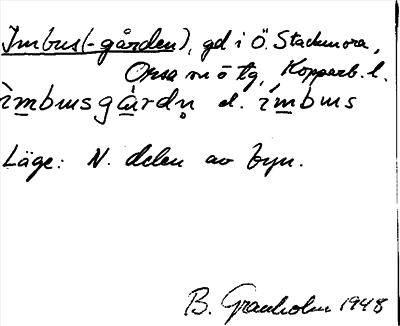 Imbus(-gården), gd i Ö. Stackmora,
Orsa sn o tg, Kopparb. l.
ìmbusgårdṇ el. ímbus
Läge: N. delen av byn.
B. Granholm 1948